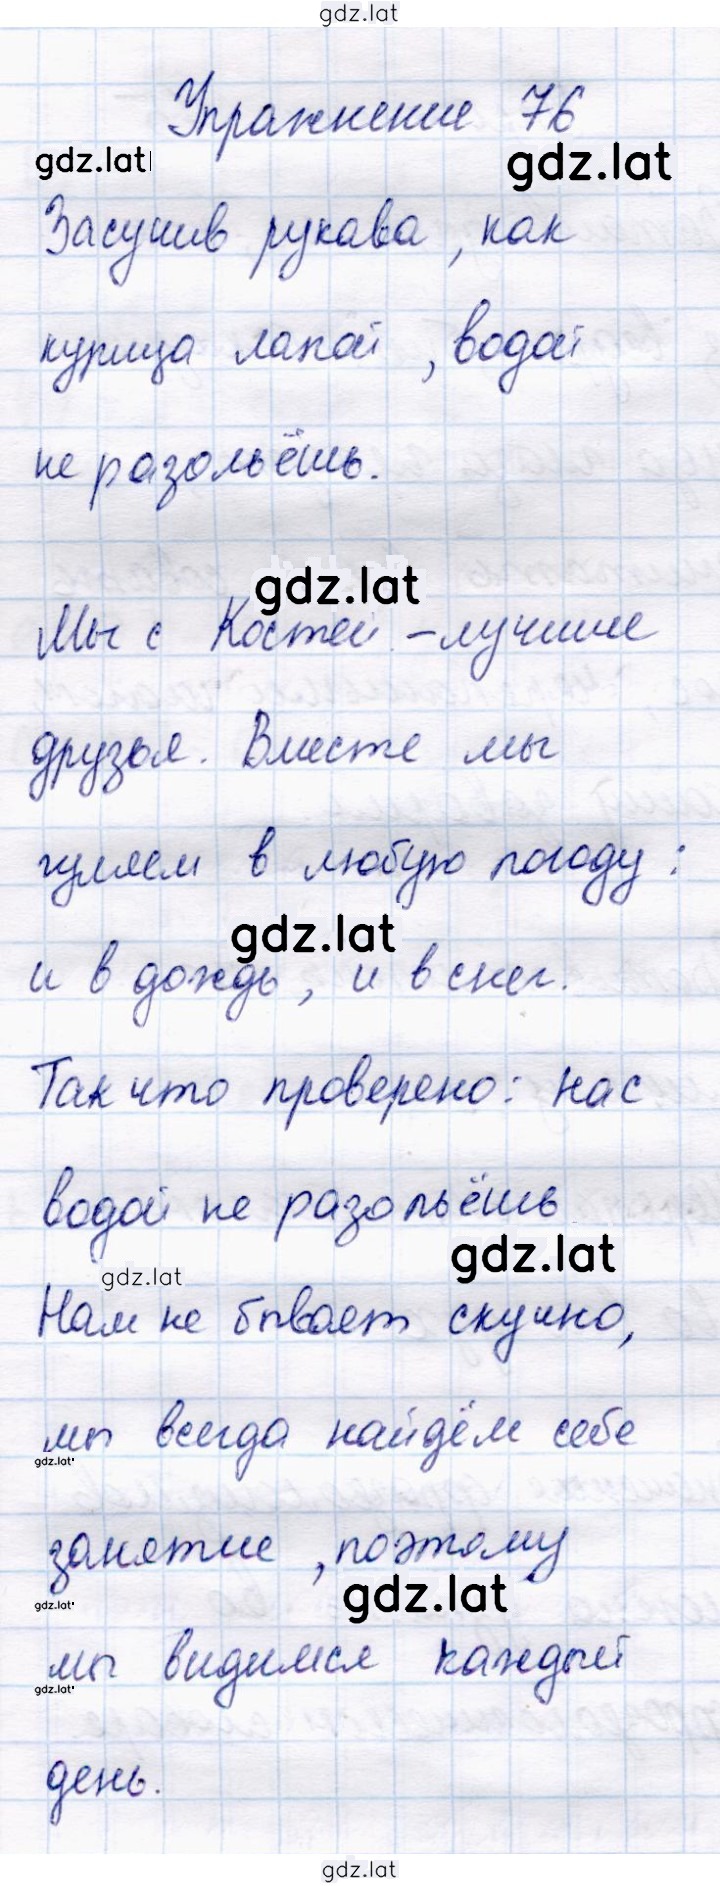 gdz.lat
Упражнение 76
gdz.lat gdz.lat
Засучив рукава, как
курица лапой, водой
не разольёшь.
gdz.lat
Мы с Костей - лучшие
друзья. Вместе мы
гуляем в любую погоду:
gdz.lat
и в дождь, и в снег.
Так что проверено: нас
водой не разольёшь
gdz.lat
gdz.lat
Нам не бывает скучно,
мы всегда найдём себе
gdz.lat
занятие, поэтому
gdz.lat gdz.lat
мы видимся каждый
gdz.lat
день.
gdz.lat